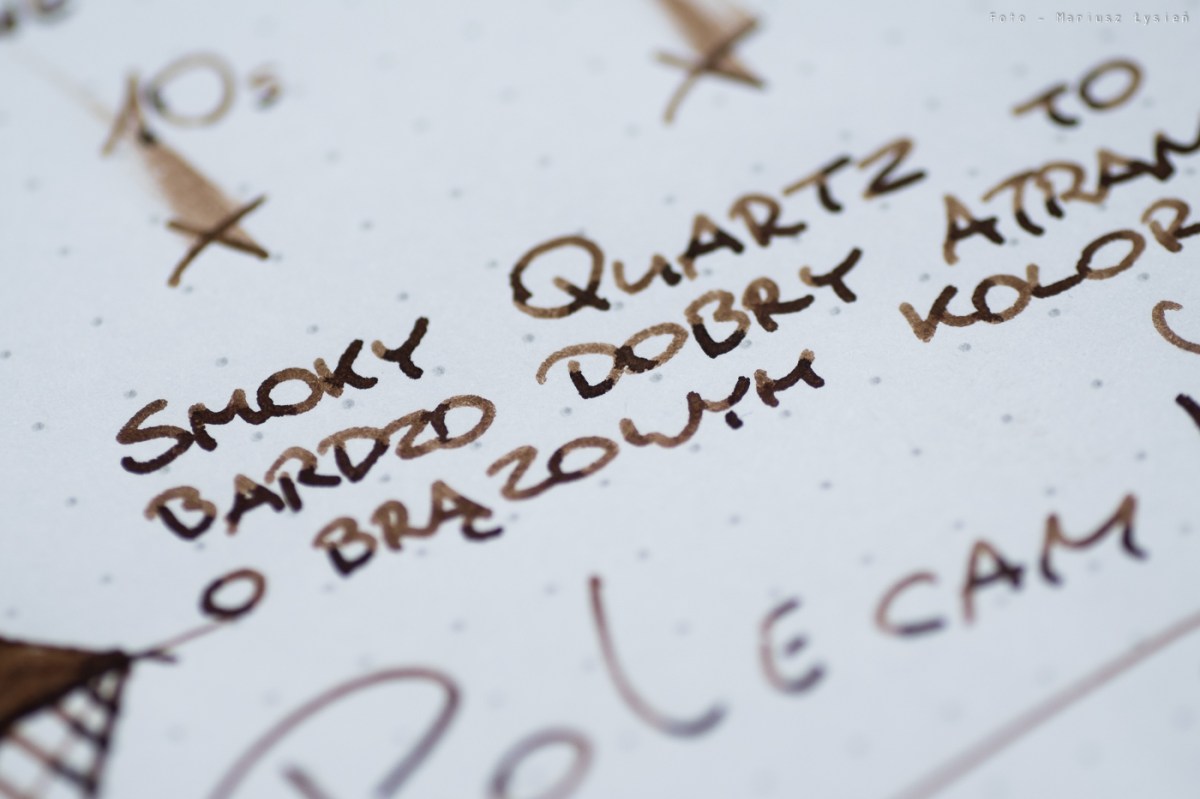 Foto - Mariusz Łysień
10s
SMOKY QUARTZ TO
BARDZO DOBRY ATRAM
O BRĄZOWYM KOLOR
POLECAM